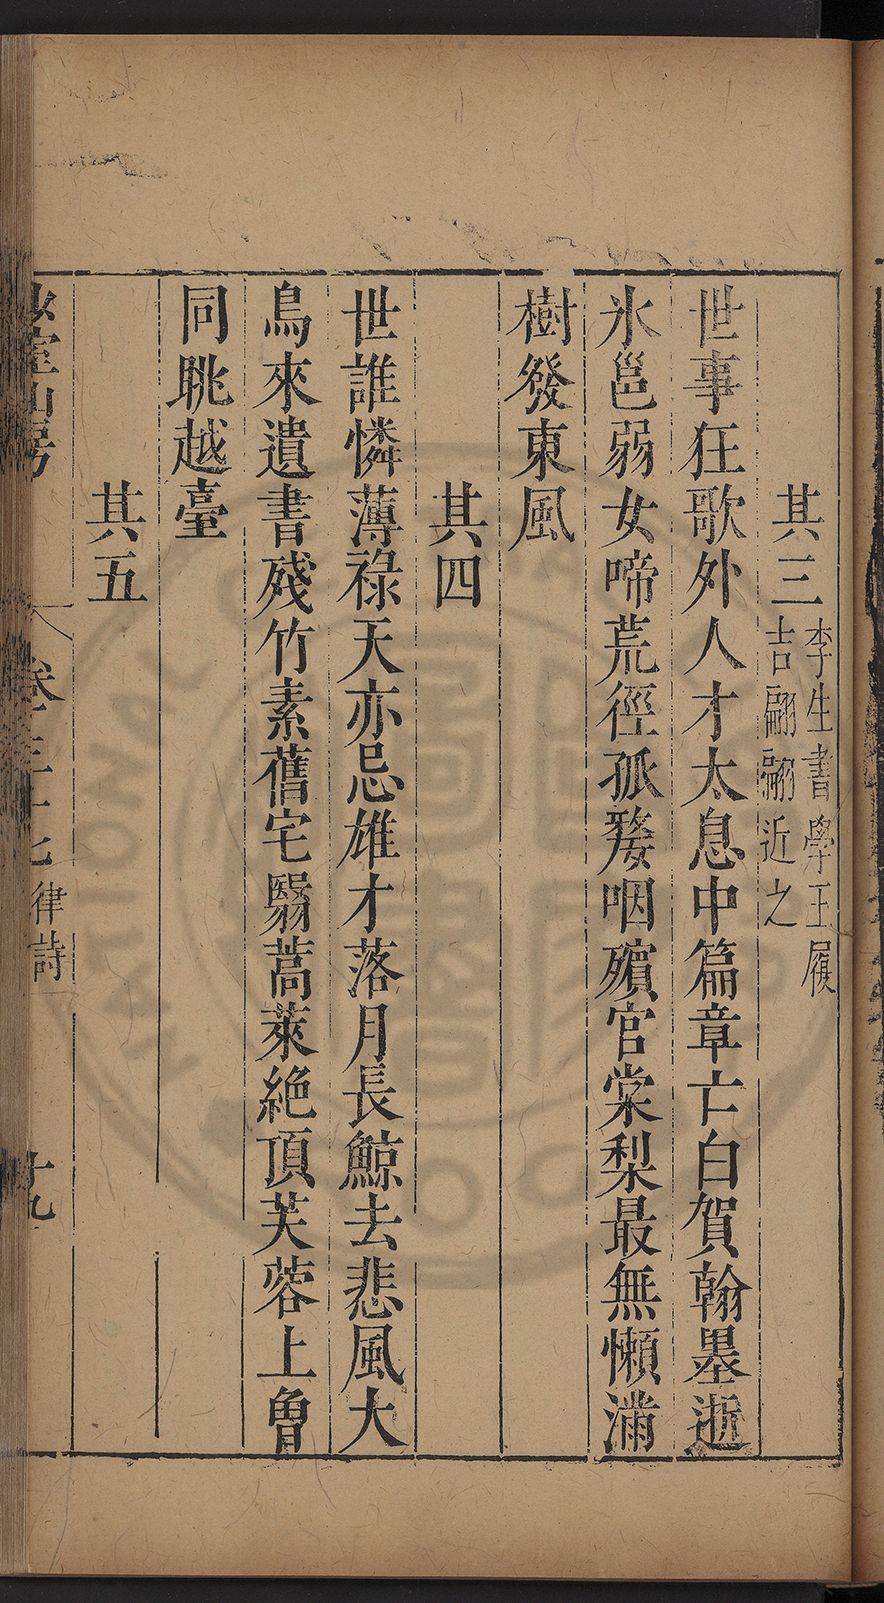 其三李生書學王履
吉翩翩近之
世事狂歌外人才太息中篇章亡白賀翰墨逝
氷邕弱女啼荒徑孤嫠咽殯宮棠梨最無懶滿
樹發東風
其四
世誰憐薄祿天亦忌雄才落月長鯨去悲風大
鳥來遺書殘竹素舊宅翳蒿萊絶頂芙蓉上曾
同眺越臺
其五
少室山房
卷三十七律詩
十九